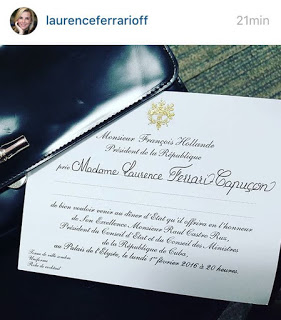 laurenceferrarioff
21min
Monsieur François Hollande
Président de la République
prie Madame Laurence Ferrari Capuçon
de bien vouloir venir au dîner d'Etat qu'il offrira en l'honneur
de Son Excellence Monsieur Raúl Castro Ruz,
Président du Conseil d'Etat et du Conseil des Ministres
de la République de Cuba,
au Palais de l'Elysée, le lundi 1er février 2016 à 20 heures.
Tenue de ville sombre
Uniforme
Robe de cocktail